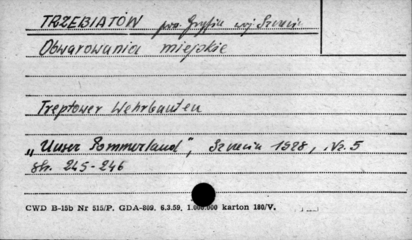 TRZEBIATÓW pow. Gryfin woj Szczecin
Obwarowania miejskie
Treptower Wehrbauten
„Unser Pommerland", Szczecin 1928, Nr. 5
str. 245-246
CWD B-15b Nr 515/P. GDA-809. 6.3.59. 1.000.000 karton 180/V.